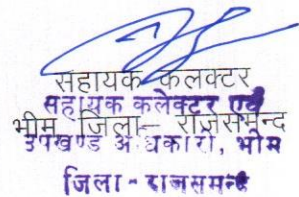 सहायक कलक्टर
सहायक कलेक्टर एवं
भीम जिला– राजसमन्द
उपखण्ड अधिकारी, भीम
जिला - राजसमन्द